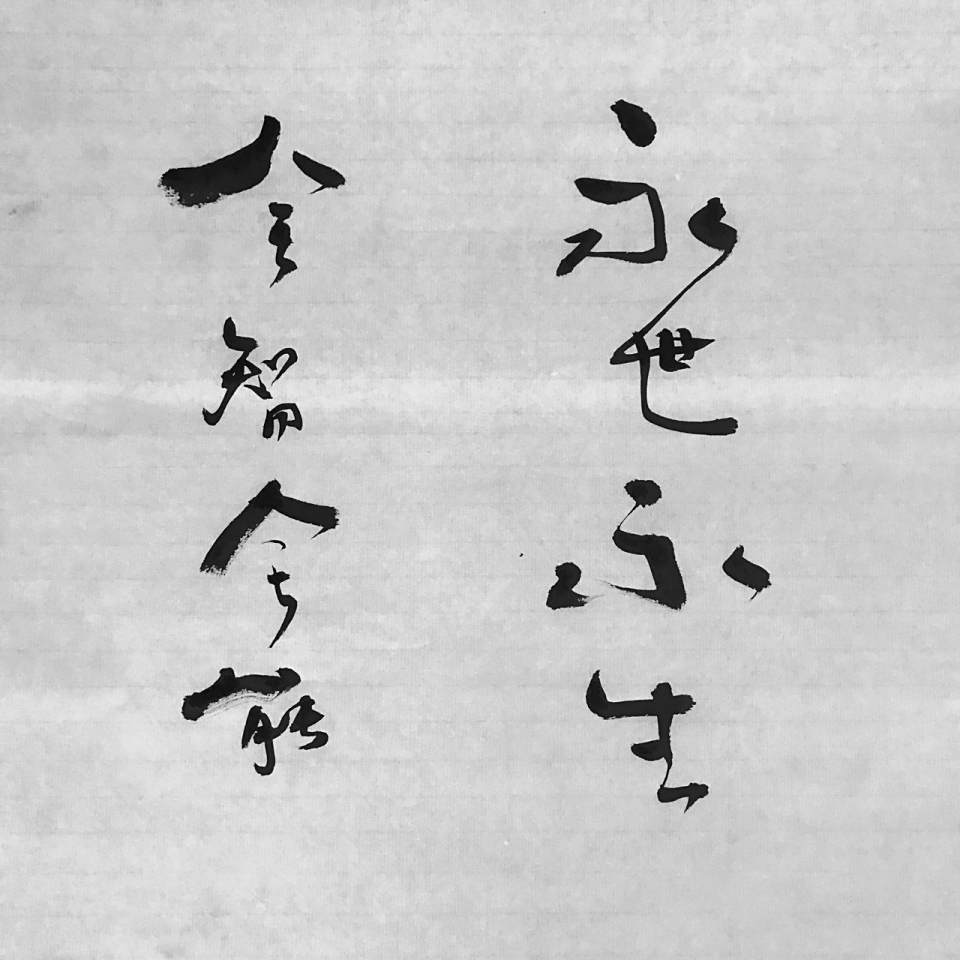 永世永生
全智全能